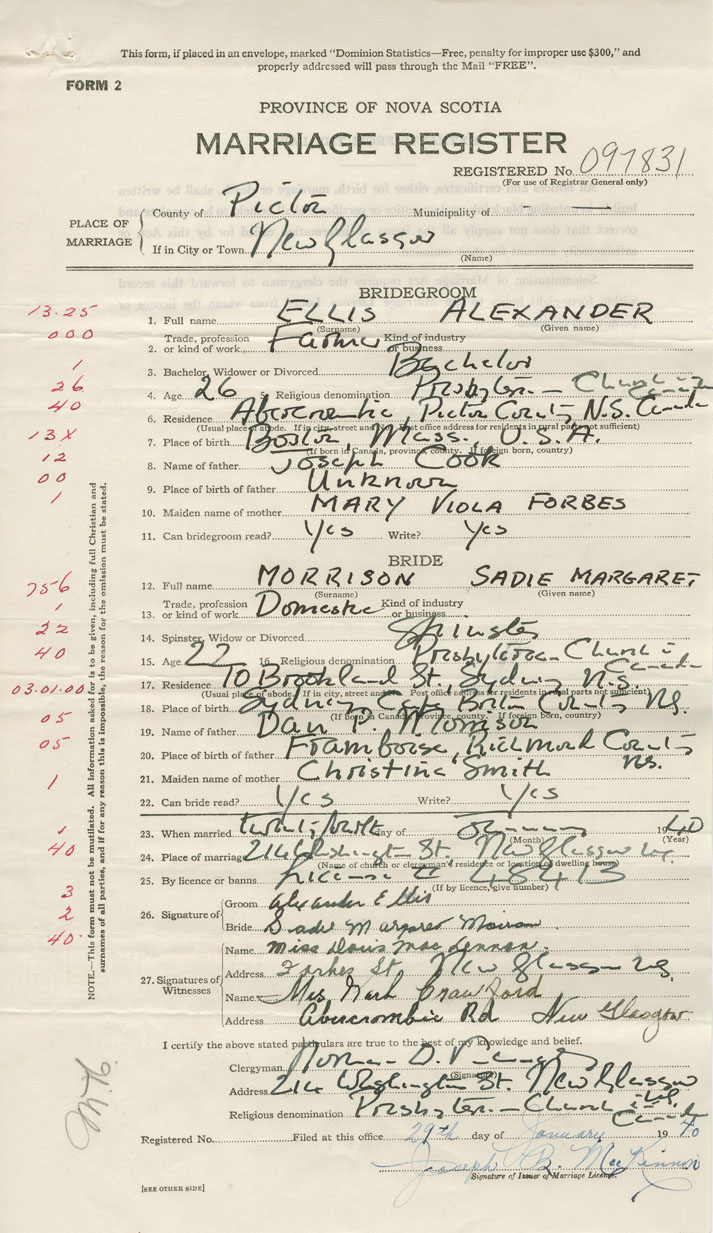 This form, if placed in an envelope, marked "Dominion Statistics—Free, penalty for improper use $300," and
properly addressed will pass through the Mail "FREE".
FORM 2
PROVINCE OF NOVA SCOTIA
MARRIAGE REGISTER
REGISTERED No. 097831
(For use of Registrar General only)
PLACE OF MARRIAGE
County of Pictou Municipality of — —
If in City or Town New Glasgow
(Name)
BRIDEGROOM
13-25
1. Full name ELLIS ALEXANDER
(Surname) (Given name)
000
2. Trade, profession or kind of work Farmer Kind of industry or business
1
3. Bachelor, Widower or Divorced Bachelor
26
4. Age 26 5. Religious denomination Presbyterian Church in Canada
40
6. Residence Abercrombie, Pictou County N.S. Canada
(Usual place of abode. If in city, street and Post office address for residents in rural parts not sufficient)
13X
7. Place of birth Boston, Mass., U.S.A.
(If born in Canada, province, county. If foreign born, country)
12
8. Name of father Joseph COOK
00
9. Place of birth of father Unknown
1
10. Maiden name of mother MARY VIOLA FORBES
11. Can bridegroom read? Yes Write? Yes
BRIDE
756
12. Full name MORRISON SADIE MARGARET
(Surname) (Given name)
1
13. Trade, profession or kind of work Domestic Kind of industry or business
22
14. Spinster, Widow or Divorced Spinster
40
15. Age 22 16. Religious denomination Presbyterian Church in Canada
17. Residence 70 Brookland St. Sydney N.S.
(Usual place of abode. If in city, street and Post office address for residents in rural parts not sufficient)
03.01.00
18. Place of birth Sydney, Cape Breton County N.S.
(If born in Canada, province, county. If foreign born, country)
05
19. Name of father Dan P. Morrison
05
20. Place of birth of father Framboise, Richmond County N.S.
1
21. Maiden name of mother Christina Smith
22. Can bride read? Yes Write? Yes
1
23. When married day of January 1940
(Month) (Year)
40
24. Place of marriage 214 Washington St. New Glasgow N.S.
(Name of church or clergyman's residence or location of dwelling house)
25. By licence or banns License # 48413
(If by licence, give number)
3
2
40
26. Signature of
Groom Alexander Ellis
Bride Sadie Margaret Morrison
27. Signatures of Witnesses
Name Miss Doris MacLennon.
Address Forbes St. New Glasgow N.S.
Name Mrs Crawford
Address Abercrombie Rd New Glasgow
NOTE.—This form must not be mutilated. All information asked for is to be given, including full Christian and
surnames of all parties, and if for any reason this is impossible, the reason for the omission must be stated.
I certify the above stated particulars are true to the best of my knowledge and belief.
Clergyman Norman D.
(Signature)
Address 214 Washington St. New Glasgow
Religious denomination Presbyterian Church in Canada
Registered No. Filed at this office 29th day of January 1940
Joseph B. MacKinnon
Signature of Issuer of Marriage License.
[SEE OTHER SIDE]